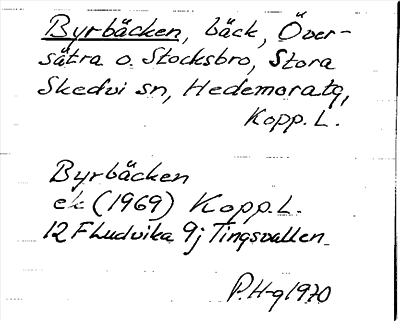 Byrbäcken, bäck, Över-
sätra o. Stocksbro, Stora
Skedvi sn, Hedemora tg,
Kopp. L.
Byrbäcken
ek (1969) Kopp. L.
12 F Ludvika 9j Tingsvallen
P.H-g 1970